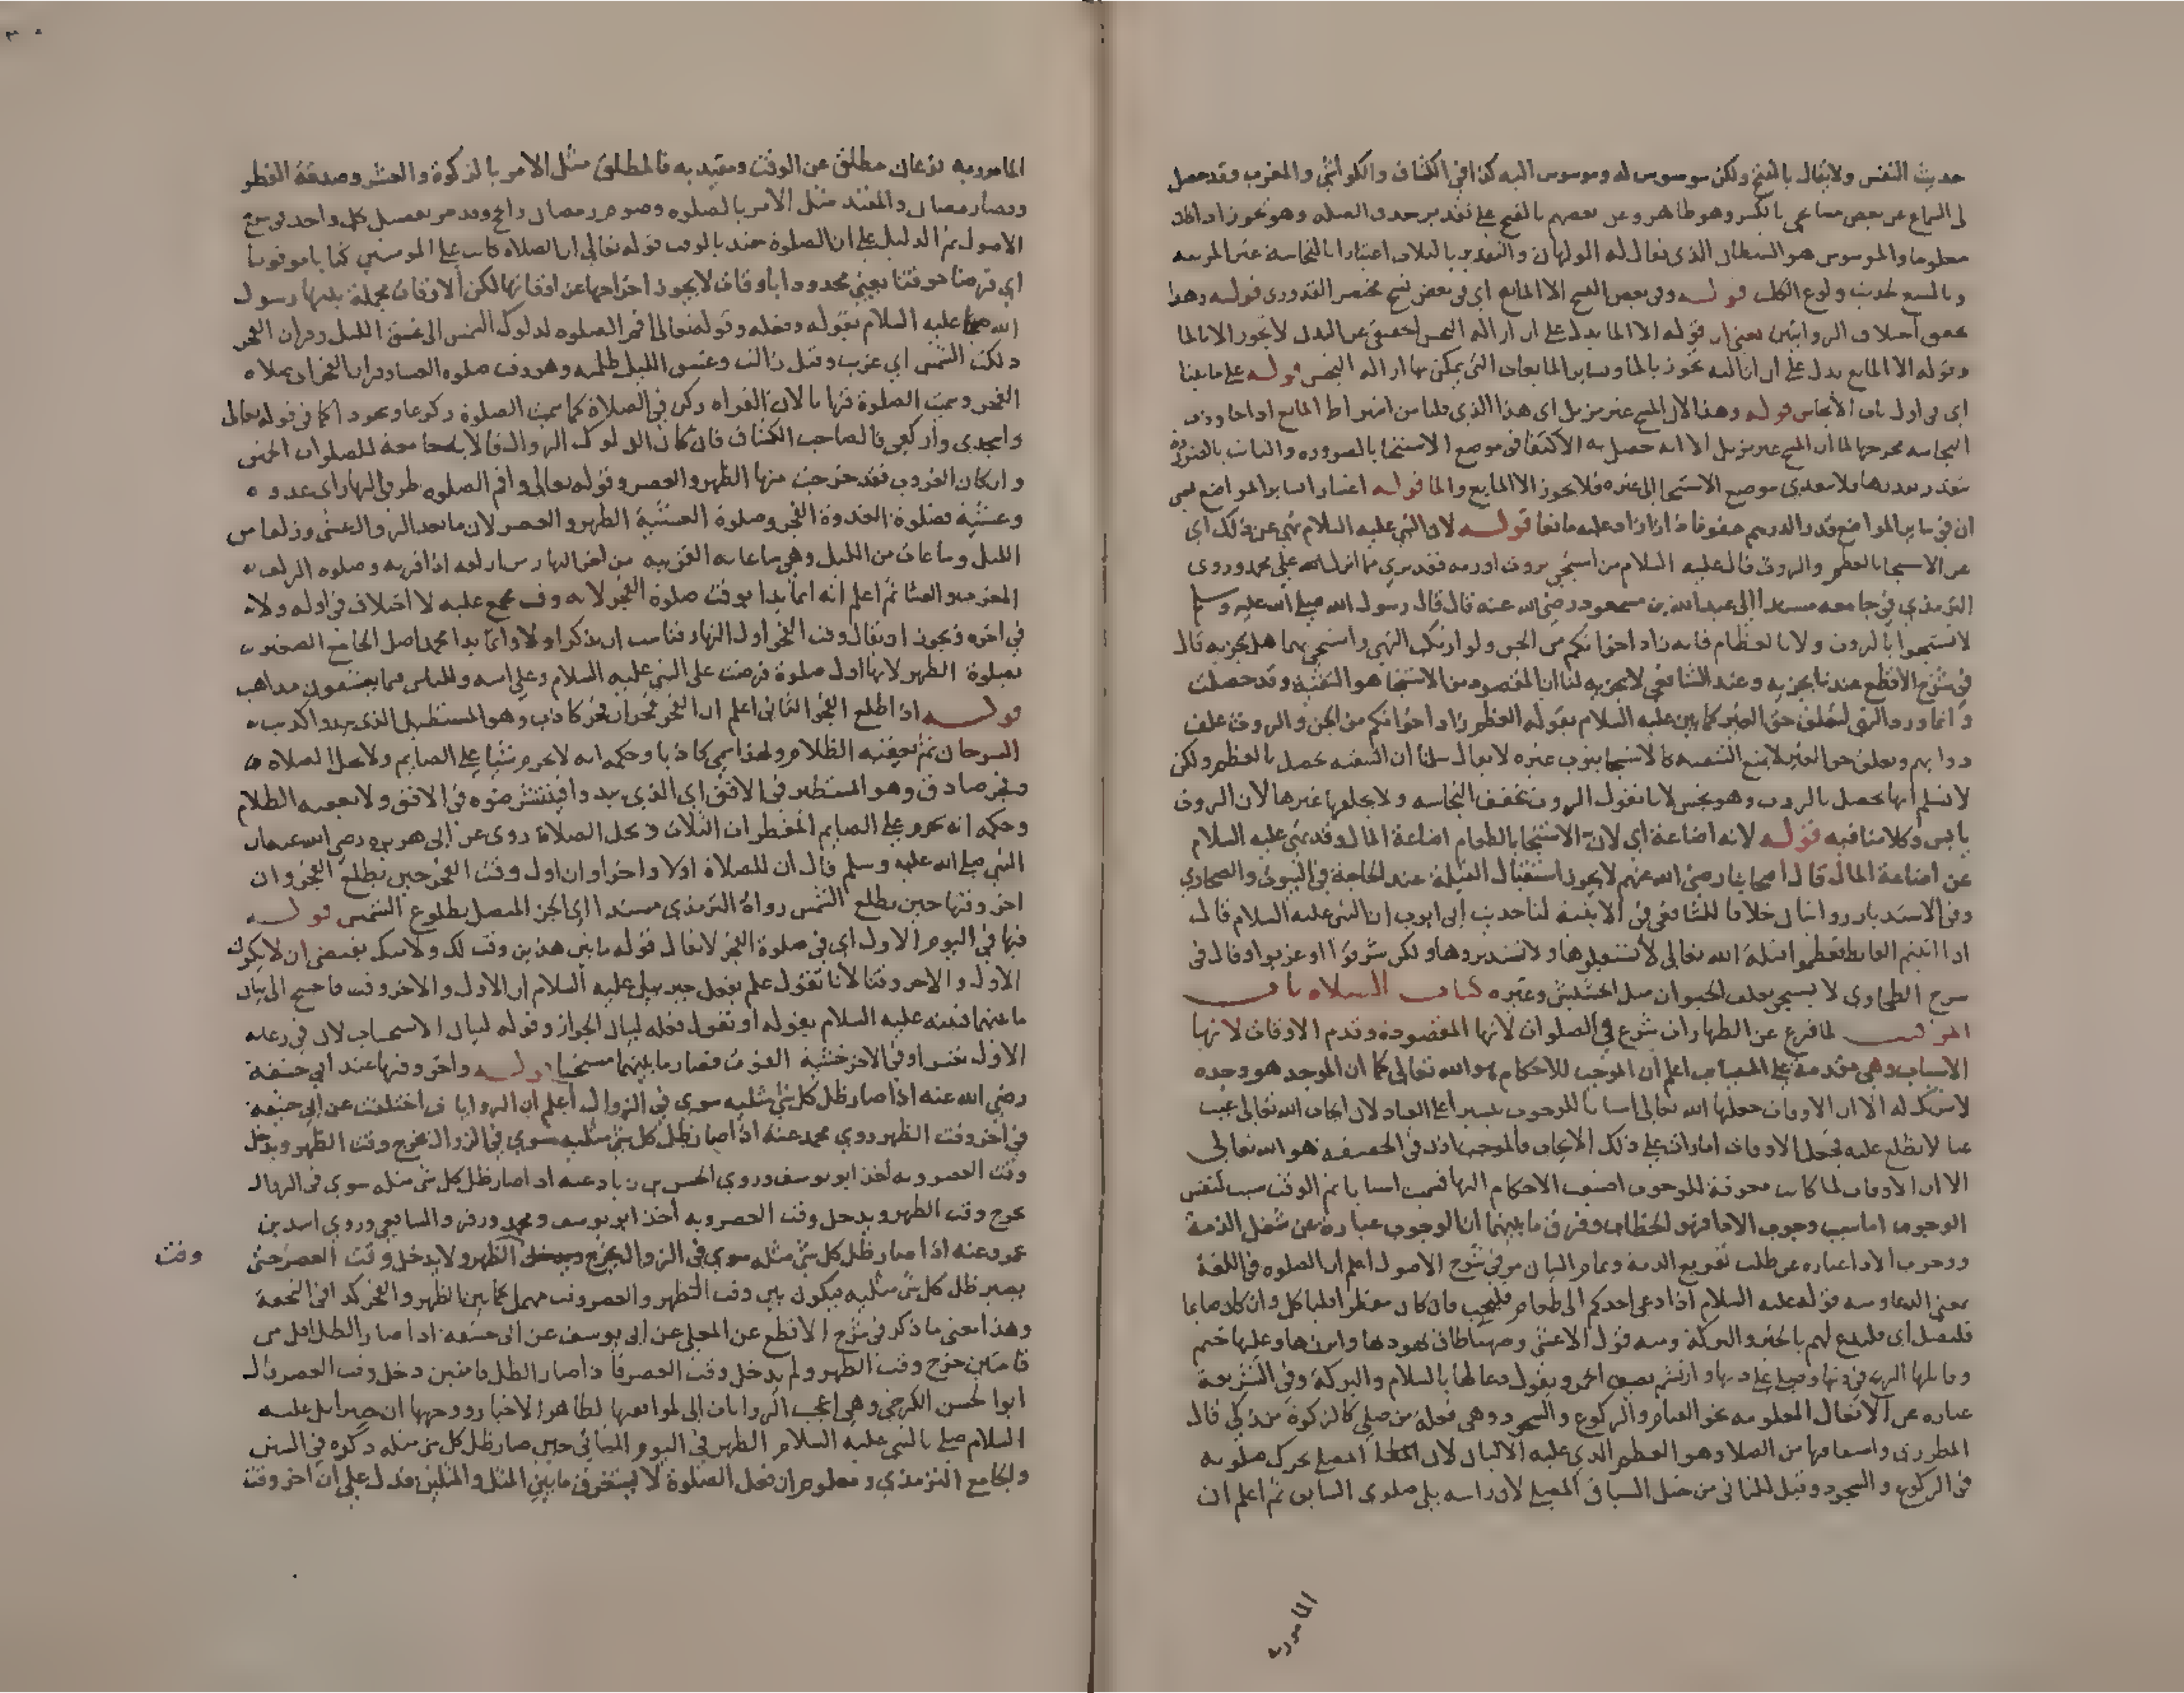 حديث النفس ولا يقال بالفتح ولكن موسوس له وموسوس اليه كذا في الكشاف والكواشي والمغرب وقد حصل
لي السماع عن بعض مشايخي بالكسر وهو ظاهر وعن بعضهم بالفتح على تقدير حذف الصله وهو يجوز اذا كان
معلوما والموسوس هو الشيطان الذي يقال له الولهان والتقدير بالثلاث اعتبارا بالنجاسة غير المرئيه
وبالسبع لحديث ولوغ الكلب قوله وفي بعض النسخ الا المايع اي في بعض نسخ مختصر القدوري قوله وهذا
اختلاف الروايتين يعني ان قوله الا الما يدل على ان ازالة النجس الحقيقي عن البدن لا يجوز الا بالما
وقوله الا المايع يدل على ان ازالته يجوز بالما وبساير المايعات التي يمكن بها ازالة النجس قوله على ما بينا
اي في اول باب الانجاس قوله وهذا لان المسح غير مزيل اي هذا الذي قلنا من اشتراط المايع اذا جاوزت
النجاسه مخرجها لما ان المسح غير مزيل الا انه حصل به الاكتفا في موضع الاستنجا بالضرورة والثابت بالضرورة
يتقدر بقدرها فلا يتعدى موضع الاستنجا الى غيره فلا يجوز الا المايع والما قوله اعتبارا بساير المواضع يعني
ان في ساير المواضع قدر الدرهم عفو فاذا زاد عليه مانعا قوله لان النبي عليه السلام نهى عن ذلك اي
عن الاستنجا بالعظم والروث قال عليه السلام من استنجى بروث او رمه فقد بري مما انزل الله على محمد وروى
الترمذي في جامعه مسندا الى عبد الله بن مسعود رضي الله عنه قال قال رسول الله صلى الله عليه وسلم
لا تستنجوا بالروث ولا بالعظام فانه زاد اخوانكم من الجن ولو ارتكب النهي واستنجى بهما هل يجزيه قال
في شرح الاقطع عندنا يجزيه وعند الشافعي لا يجزيه لنا ان المقصود من الاستنجا هو التنقية وقد حصلت
وانما ورد النهي لتعلق حق الغير كما بين عليه السلام بقوله العظم زاد اخوانكم من الجن والروث علف
دوابهم وتعلق حق الغير لا يمنع التنقيه كالاستنجا بثوب غيره لا يقال سلمنا ان التنقيه تحصل بالعظم ولكن
لا نسلم انها تحصل بالروث وهو نجس لانا نقول الروث يخفف النجاسه ولا يجلبها غيرها لان الروث
يابس وكلامنا فيه قوله لانه اضاعة اي لان الاستنجا بالطعام اضاعة المال وقد نهى عليه السلام
عن اضاعة المال قال اصحابنا رضي الله عنهم لا يجوز استقبال القبلة عند الحاجة في البيوت والصحاري
وفي الاستدبار روايتان خلافا للشافعي في الابنية لنا حديث ابي ايوب ان النبي عليه السلام قال
اذا اتيتم الغايط فعظموا قبلة الله تعالى لا تستقبلوها ولا تستدبروها ولكن شرقوا او غربوا وقال في
شرح الطحاوي لا يستنجى بعلف الحيوان مثل الحشيش وغيره كتاب الصلاه باب
المواقيت لما فرغ عن الطهارات شرع في الصلوات لانها المقصودة وقدم الاوقات لانها
الاسباب وهي مقدمة على المسببات اعلم ان الموجب للاحكام هو الله تعالى كما ان الموجد هو وحده
لا شريك له الا ان الاوقات جعلها الله تعالى اسبابا للوجوب تيسيرا على العباد لان ايجاب الله تعالى غيب
عنا لا نطلع عليه فجعل الاوقات امارات على ذلك الايجاب فالموجب اذن في الحقيقه هو الله تعالى
الا ان الاوقات لما كانت معرفة للوجوب اضيف الاحكام اليها فسميت اسبابا ثم الوقت سبب لنفس
الوجوب اما سبب وجوب الادا فهو الخطاب وفرق ما بينهما ان الوجوب عبارة عن شغل الذمة
ووجوب الادا عباره عن طلب تفريغ الذمه وتمام البيان مر في شرح الاصول اعلم ان الصلوه في اللغة
بمعنى الدعا ومنه قوله عليه السلام اذا دعي احدكم الى طعام فليجب فان كان مفطرا فلياكل وان كان صايما
فليصل اي فليدع لهم بالخير والبركة ومنه قول الاعشى وصهبا طاف يهوديها وابرزها وعليها ختم
وقابلها الريح في دنها وصلى على دنها وارتسم يصف الخمر ويقول دعا لها بالسلام والبركة وفي الشريعة
عباره عن الافعال المعلومه نحو القيام والركوع والسجود وهي فعلة من صلى كالزكوة من زكى قال
المطرزي واشتقاقها من الصلا وهو العظم الذي عليه الاليتان لان المصلي يحرك صلويه
في الركوع والسجود وقيل للثاني من خيل السباق المصلي لان راسه يلي صلوي السابق ثم اعلم ان
المامور به
المامور به نوعان مطلق عن الوقت ومقيد به فالمطلق مثل الامر بالزكوة والعشر وصدقة الفطر
وقضا رمضان والمقيد مثل الامر بالصلوه وصوم رمضان والحج وقد مر تفصيل كل واحد في شرح
الاصول ثم الدليل على ان الصلوة مقيد بالوقت قوله تعالى ان الصلاة كانت على المومنين كتابا موقوتا
اي فرضا موقتا يعني محدودا باوقات لا يجوز اخراجها عن اوقاتها لكن الاوقات مجملة بينها رسول
الله عليه السلام بقوله وفعله وقوله تعالى اقم الصلوه لدلوك الشمس الى غسق الليل وقران الفجر
دلكت الشمس اي غربت وقيل زالت وغسق الليل ظلمته وهو وقت صلوه العشا وقران الفجر اي صلاه
الفجر وسميت الصلوة قرانا لان القراه ركن في الصلاة كما سميت الصلوة ركوعا وسجودا كما في قوله تعالى
واسجدي واركعي قال صاحب الكشاف فان كان الدلوك الزوال فالايه جامعة للصلوات الخمس
وان كان الغروب فقد خرجت منها الظهر والعصر وقوله تعالى واقم الصلوه طرفي النهار اي غدوه
وعشية فصلوة الغدوة الفجر وصلوة العشية الظهر والعصر لان ما بعد الزوال عشي وزلفا من
الليل وساعات من الليل وهي ساعاته القريبه من اخر النهار من ازلفه اذا قربه وصلوه الزلف
المغرب والعشا ثم اعلم انه انما بدا بوقت صلوة الفجر لانه وقت مجمع عليه لا اختلاف في اوله ولا
في اخره ويجوز ان يقال وقت الفجر اول النهار فناسب ان يذكر اولا وانما بدا محمد اصل الجامع الصغير
بصلوة الظهر لانها اول صلوة فرضت على النبي عليه السلام وعلى امته وللناس فيما يعشقون مذاهب
قوله اذا طلع الفجر الثاني اعلم ان الفجر فجران فجر كاذب وهو المستطيل الذي يبدوا كذنب
السرحان ثم يعقبه الظلام ولهذا سمي كاذبا وحكمه انه لا يحرم شيا على الصايم ولا يحل الصلاه
وفجر صادق وهو المستطير في الافق اي الذي يبدوا فينتشر ضوه في الافق ولا يعقبه الظلام
وحكمه انه يحرم على الصايم المفطرات الثلاث ويحل الصلاة روى عن ابي هريره رضي الله عنه ان
النبي صلى الله عليه وسلم قال ان للصلاة اولا واخرا وان اول وقت الفجر حين يطلع الفجر وان
اخر وقتها حين يطلع الشمس رواه الترمذي مسندا اي الجز المتصل بطلوع الشمس قوله
فيها في اليوم الاول اي في صلوة الفجر لا يقال قوله ما بين هذين وقت لك ولامتك يقتضي ان لا يكون
الاول والاخر وقتا لانا نقول علم بفعل جبريل عليه السلام ان الاول والاخر وقت فاحتيج الى بيان
ما بينهما فبينه عليه السلام بقوله او نقول فعله لبيان الجواز وقوله لبيان الاستحباب لان في رعايه
الاول عسرا وفي الاخر خشية الفوت فصار ما بينهما مستحبا قوله واخر وقتها عند ابي حنيفة
رضي الله عنه اذا صار ظل كل شي مثليه سوى في الزوال اعلم ان الروايات اختلفت عن ابي حنيفة
في اخر وقت الظهر روى محمد عنه اذا صار ظل كل شي مثليه سوى في الزوال خرج وقت الظهر ودخل
وقت العصر وبه اخذ ابو يوسف وروى الحسن بن زياد عنه اذا صار ظل كل شي مثله سوى في الزوال
خرج وقت الظهر ويدخل وقت العصر وبه اخذ ابو يوسف ومحمد وزفر والشافعي وروى اسد بن
عمرو عنه اذا صار ظل كل شي مثله سوى في الزوال خرج الظهر ولا يدخل وقت العصر حتى
وقت
يصير ظل كل شي مثليه فيكون بين وقت الظهر والعصر وقت مهمل كما بين الظهر والفجر كذا في التحفة
وهذا معنى ما ذكر في شرح الاقطع عن المعلى عن ابي يوسف عن ابي حنيفه اذا صار الظل اقل من
قامتين خرج وقت الظهر ولم يدخل وقت العصر فاذا صار الظل قامتين دخل وقت العصر قال
ابو الحسن الكرخي وهي اعجب الروايات الي لموافقتها لظاهر الاخبار ووجهها ان جبرايل عليه
السلام صلى بالنبي عليه السلام الظهر في اليوم الثاني حين صار ظل كل شي مثله ذكره في السنن
والجامع الترمذي ومعلوم ان فعل الصلوة لا يستغرق ما بين المثل والمثلين فدل على ان اخر وقت